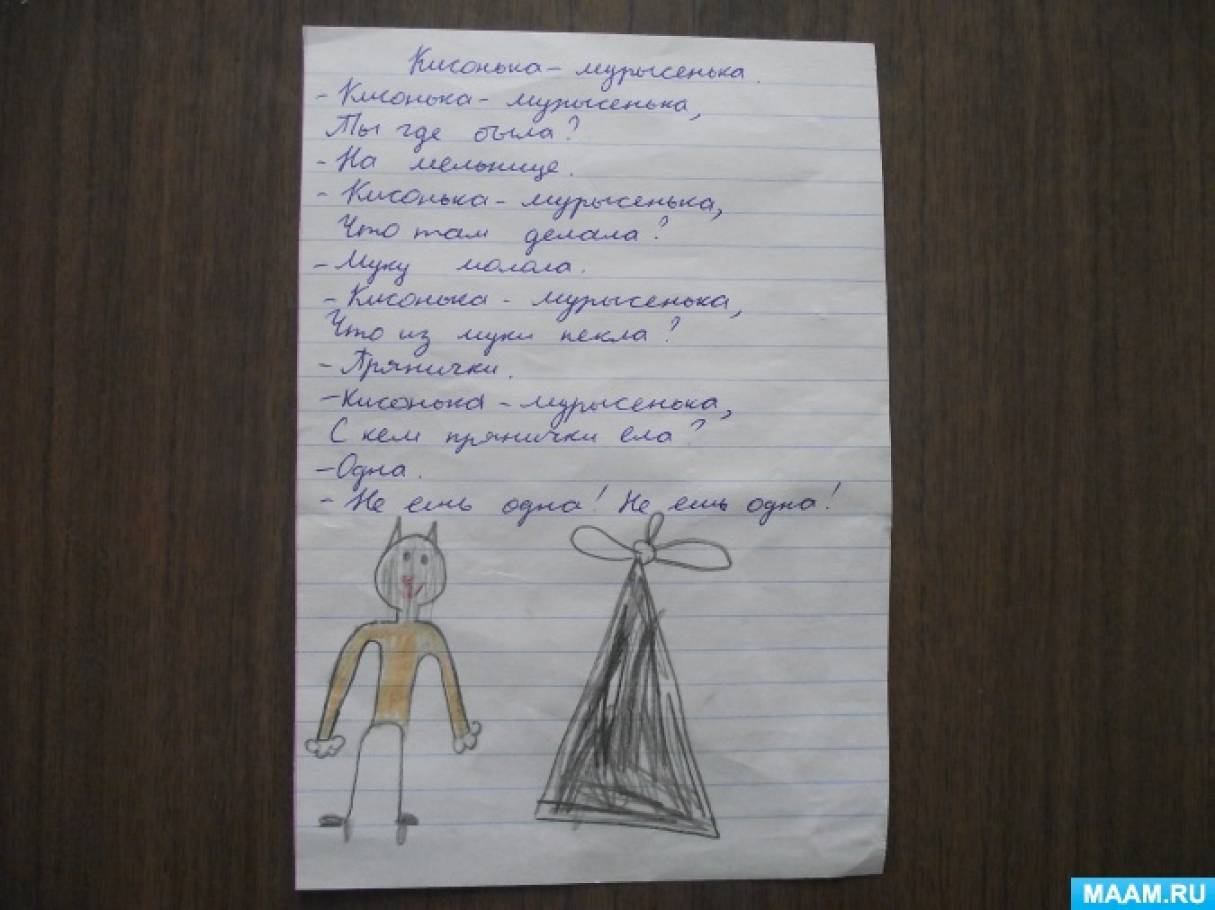 Кисонька - мурысенька.
- Кисонька - мурысенька,
Ты где была?
- На мельнице.
- Кисонька - мурысенька,
Что там делала?
- Муку молола.
- Кисонька - мурысенька,
Что из муки пекла?
- Прянички.
- Кисонька - мурысенька,
С кем прянички ела?
- Одна.
- Не ешь одна! Не ешь одна!
MAAM.RU